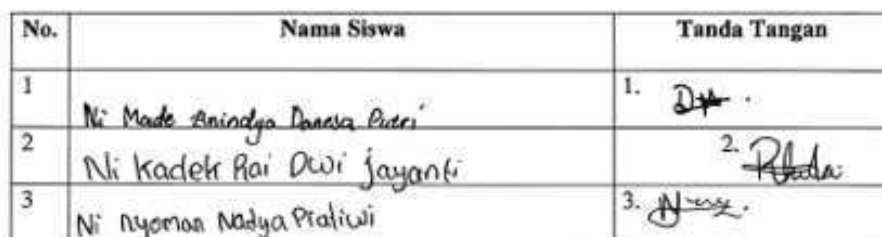 No. Nama Siswa Tanda Tangan
1 Ni Made Anindya Danesa Putri 1.
2 Ni Kadek Rai Dwi Jayanti 2.
3 Ni Nyoman Nadya Pratiwi 3.